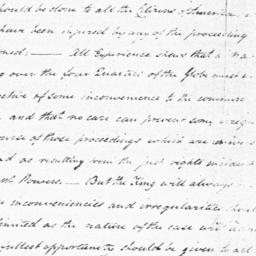 should be done to all the Citizens of America, w
have been injured by any of the proceeding
oned: — All Experience shews that a na
g over the four Quarters of the Globe must o
ctive of some inconvenience to the commerce
and that no case can prevent some irregu
course of those proceedings which are univers
d as resulting from the just rights incident
nt Powers. — But the King will always
e inconveniencies and irregularities
limited as the nature of the case will adm
fullest opportunity should be given to all